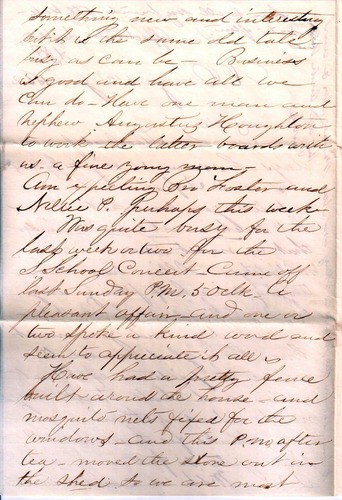 something new and interesting
but it is the same old tale
busy as can be - Business
is good and have all we
can do - Have one man and
nephew Augustus Houghton
to work the latter boards with
us. a fine young man
Am expecting Foster and
Nellie P. Perhaps this week
Was quite busy for the
last week or two for the
S School Concert - Came off
last Sunday P.M. 5 Oclk a
pleasant affair - and one or
two spoke a kind word and
seem to appreciate it all
Have had a pretty fence
built around the house - and
mosquito nets fixed for the
windows - and this P.no after
tea - moved the stove out in
the shed so we are most